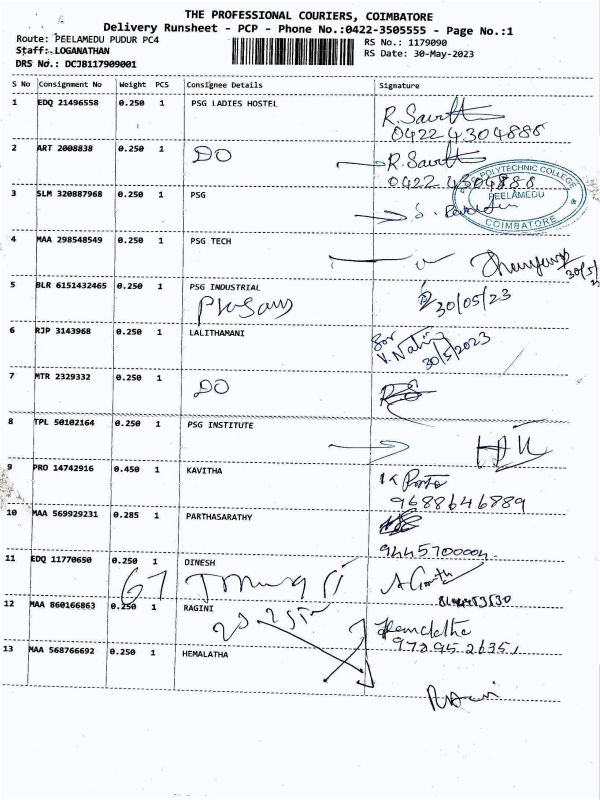 THE PROFESSIONAL COURIERS, COIMBATORE
Delivery Runsheet - PCP - Phone No.:0422-3505555 - Page No.:1
Route: PEELAMEDU PUDUR PC4 RS No.: 1179090
Staff: LOGANATHAN RS Date: 30-May-2023
DRS No.: DCJB117909001
S No Consignment No Weight PCS Consignee Details Signature
1 EDQ 21496558 0.250 1 PSG LADIES HOSTEL
0422 4304886
2 ART 2008838 0.250 1 DO
0422 4304888
POLYTECHNIC COLLEGE
PEELAMEDU
COIMBATORE
3 SLM 320887968 0.250 1 PSG
4 MAA 298548549 0.250 1 PSG TECH
30/5/
5 BLR 6151432465 0.250 1 PSG INDUSTRIAL
30/05/23
6 RJP 3143968 0.250 1 LALITHAMANI
for
30/5/2023
7 MTR 2329332 0.250 1 DO
8 TPL 50102164 0.250 1 PSG INSTITUTE
9 PRO 14742916 0.450 1 KAVITHA
9688646889
10 MAA 569929231 0.285 1 PARTHASARATHY
9445700004
11 EDQ 11770650 0.250 1 DINESH
67
12 MAA 860166863 0.250 1 RAGINI
Hemalatha
13 MAA 568766692 0.250 1 HEMALATHA